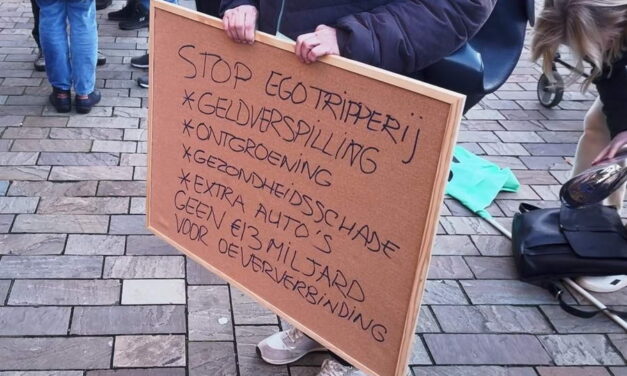 STOP EGOTRIPPERIJ
*GELDVERSPILLING
*ONTGROENING
*GEZONDHEIDSSCHADE
*EXTRA AUTO'S
GEEN €13 MILJARD
VOOR OEVERVERBINDING